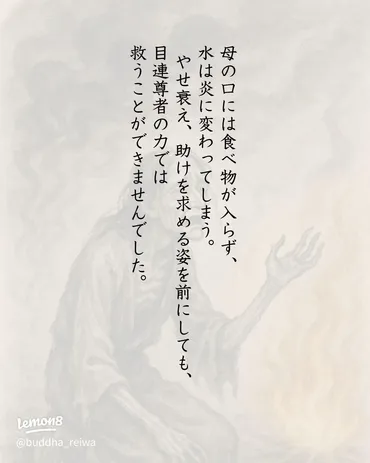 母の口には食べ物が入らず、
水は炎に変わってしまう。
やせ衰え、助けを求める姿を前にしても、
目連尊者の力では
救うことができませんでした。
lemon8
@buddha_reiwa